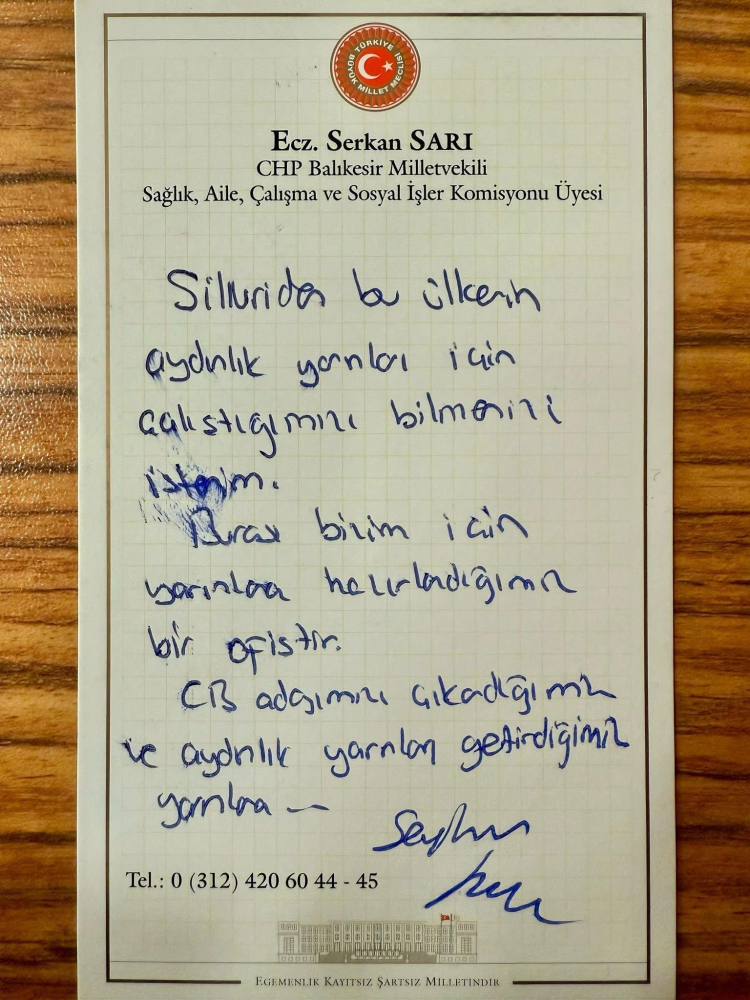 TÜRKİYE BÜYÜK MİLLET MECLİSİ
Ecz. Serkan SARI
CHP Balıkesir Milletvekili
Sağlık, Aile, Çalışma ve Sosyal İşler Komisyonu Üyesi
Silivriden bu ülkenin
aydınlık yarınları için
çalıştığımızı bilmenizi
isterim.
Burası bizim için
yarınlara hazırladığımız
bir ofistir.
CB adayımızı çıkardığımız
ve aydınlık yarınları getirdiğimiz
yarınlara
Tel.: 0 (312) 420 60 44 - 45
EGEMENLİK KAYITSIZ ŞARTSIZ MİLLETİNDİR